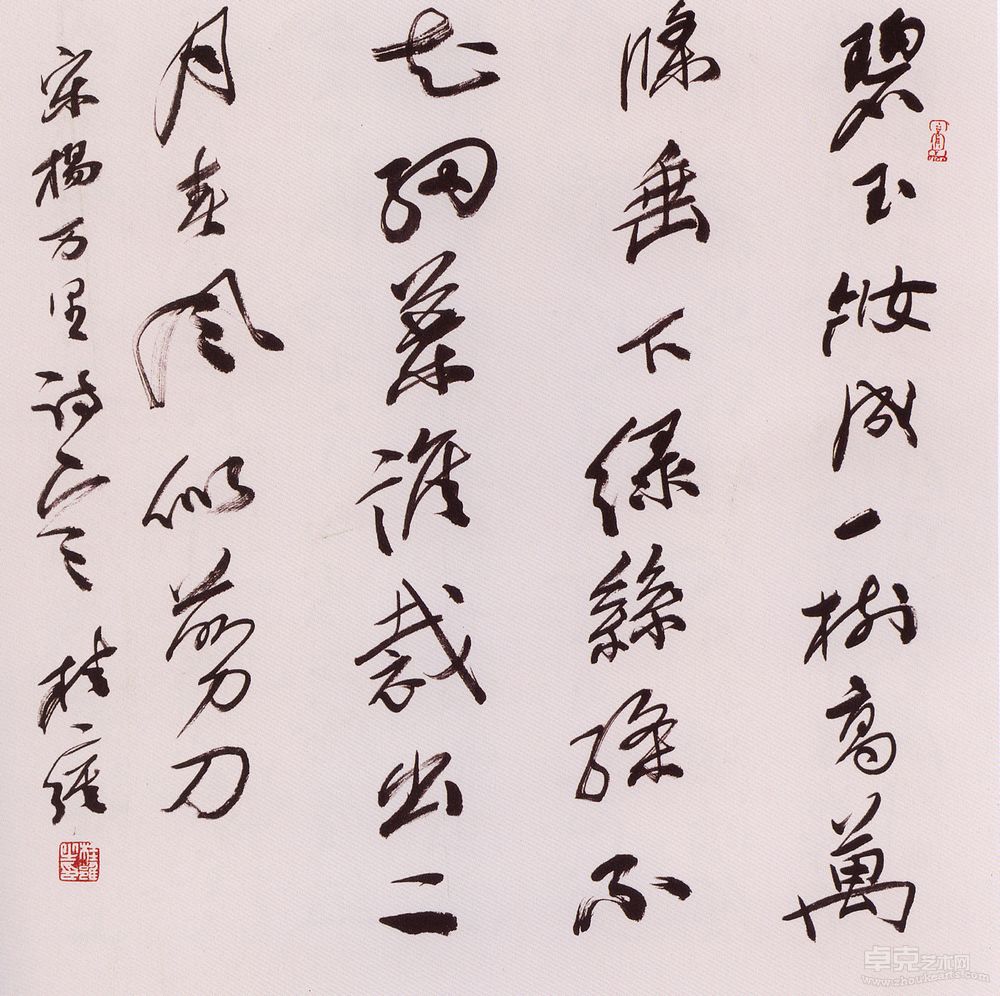 碧玉妝成一樹高萬
條垂下绿絲絛不
知細葉誰裁出二
月春風似剪刀
宋楊万里诗 桂雍
卓克艺术网
www.zhoukearts.com